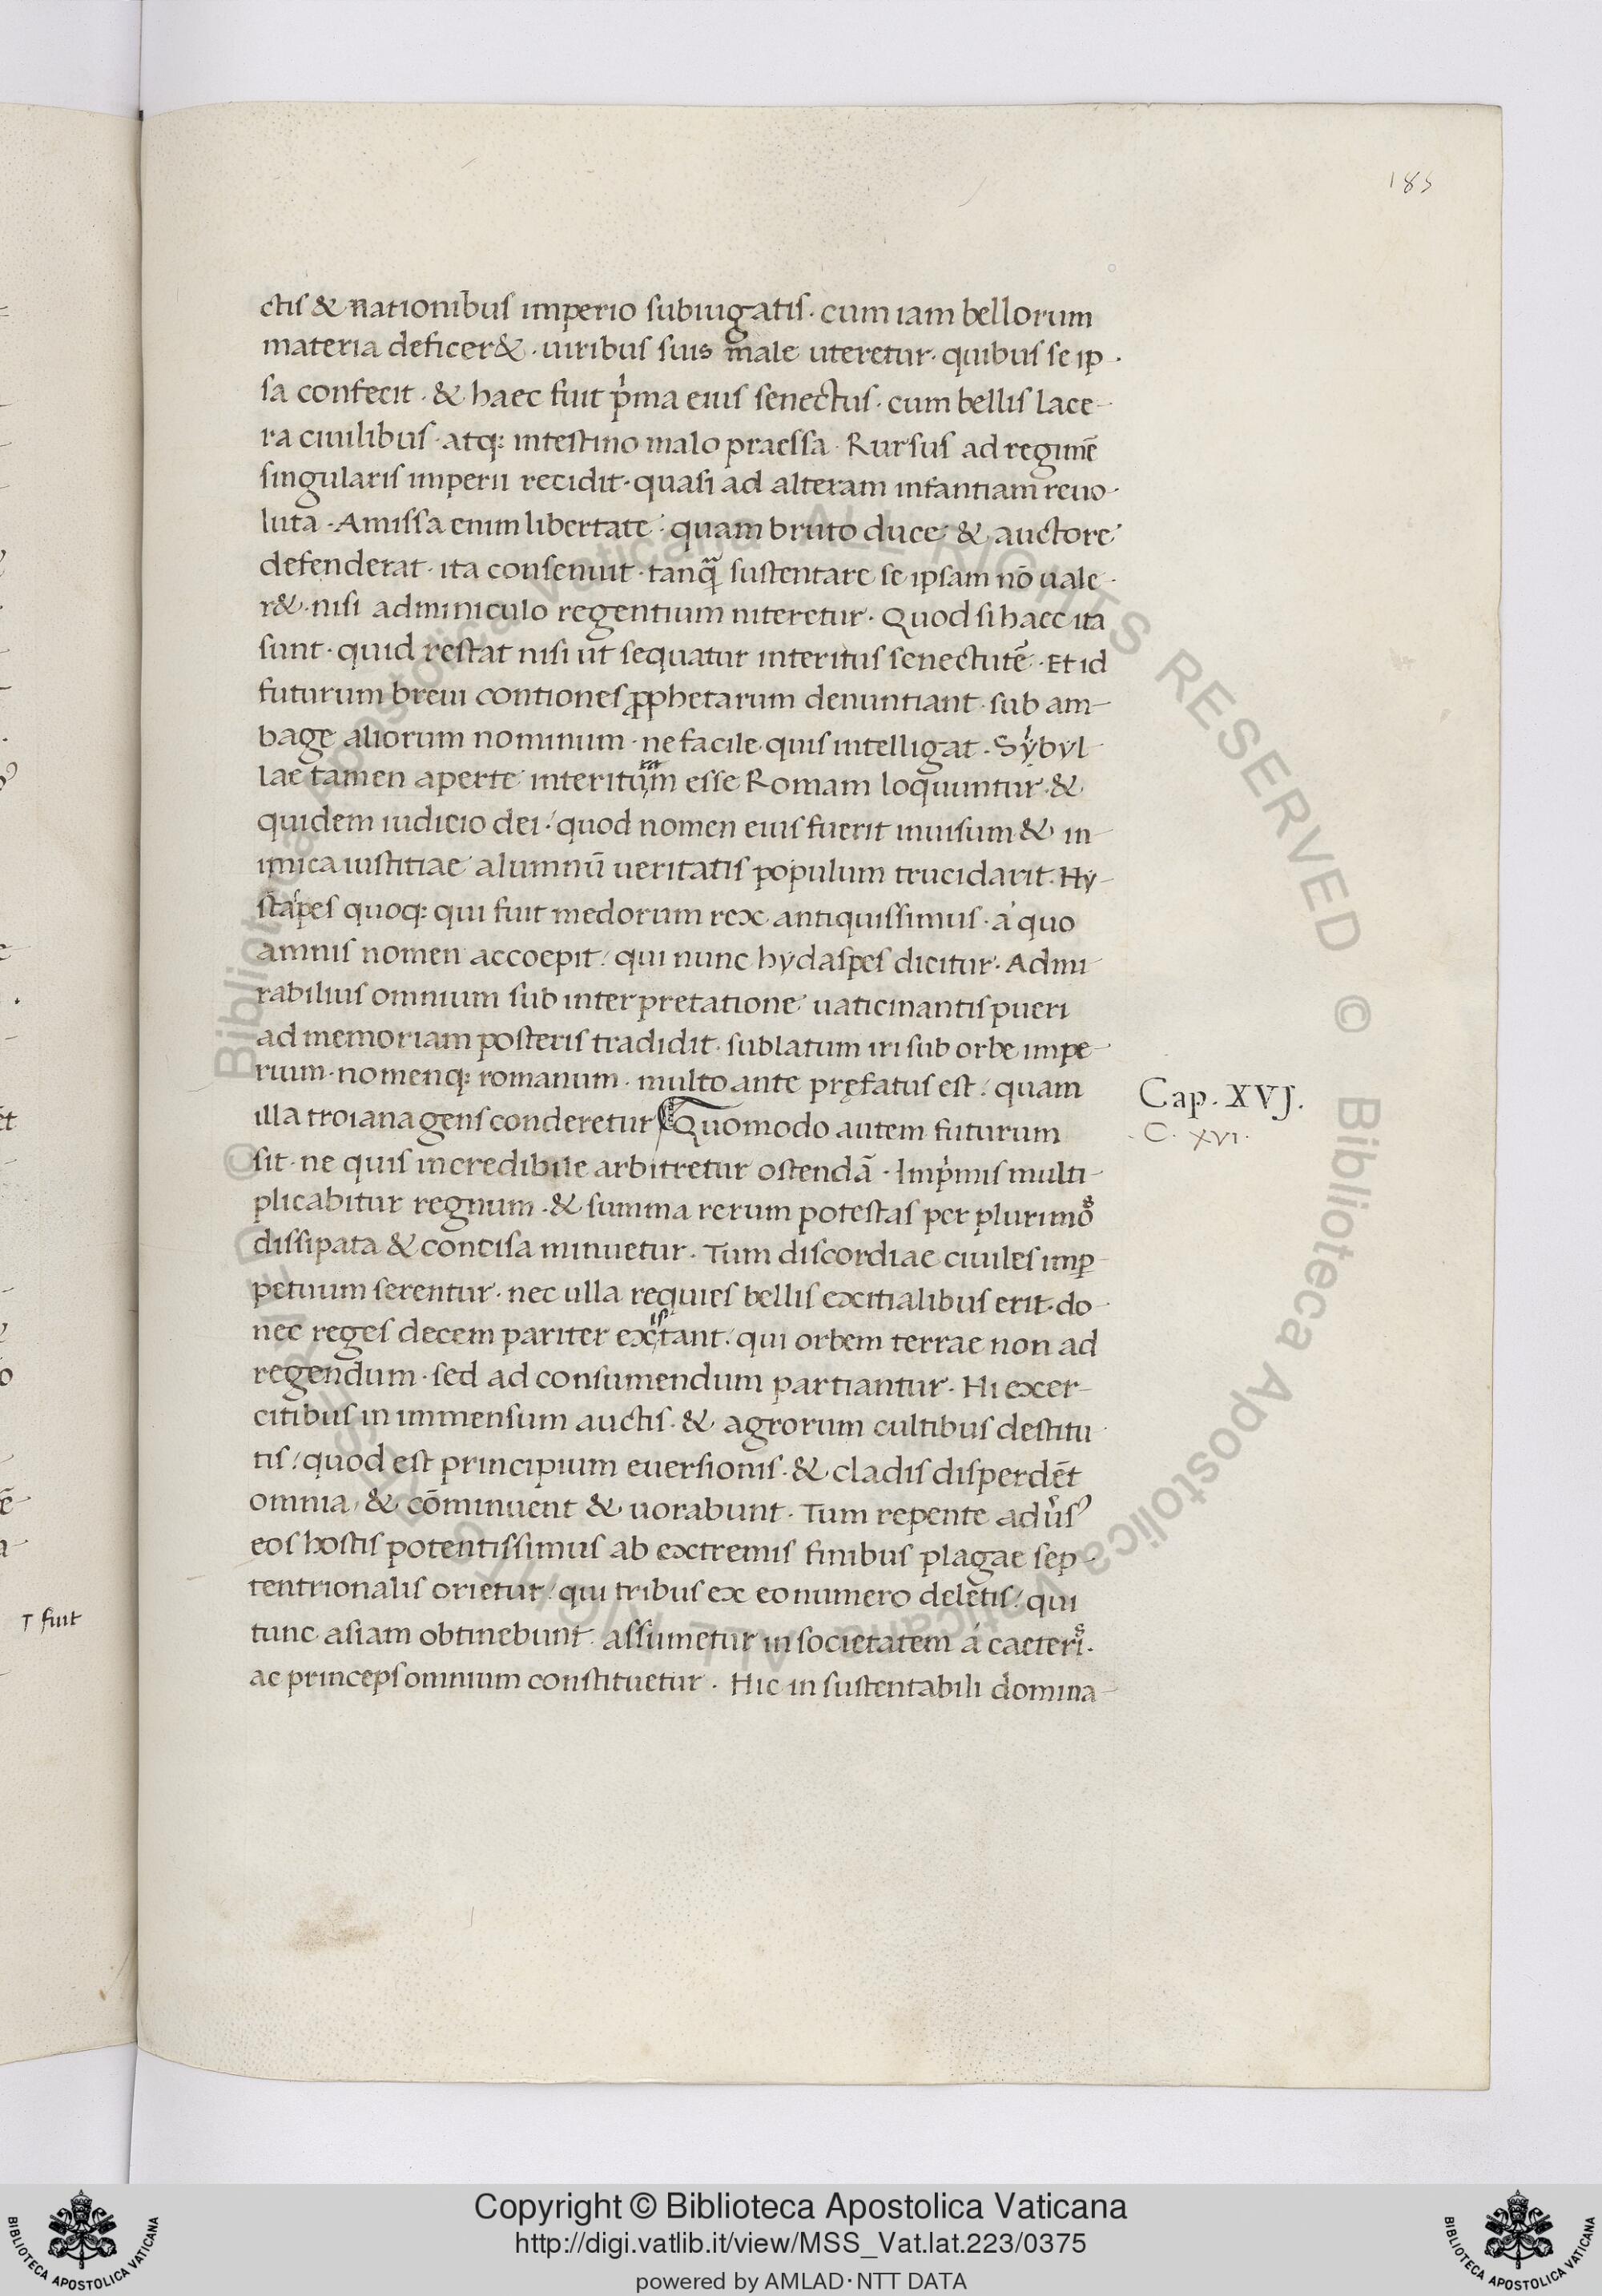 185
ctis & nationibus imperio subiugatis · cum iam bellorum
materia deficer& · uiribus suis male uteretur · quibus se ip ·
sa confecit · & haec fuit p̍ma eius senectus · cum bellis lace-
ra ciuilibus · atq; intestino malo praessa · Rursus ad regimē
singularis imperii recidit · quasi ad alteram infantiam reuo ·
luta · Amissa enim libertate · quam bruto duce & auctore
defenderat · ita consenuit · tanq̄ sustentare se ipsam nō uale ·
r& · nisi adminiculo regentium niteretur · Quod si haec ita
sunt · quid restat nisi ut sequatur interitus senectutē · Et id
futurum breui contiones ꝓphetarum denuntiant · sub am-
bage aliorum nominum · ne facile quis intelligat · Sybyl-
lae tamen aperte interitum esse Romam loquuntur · &
ra
quidem iudicio dei · quod nomen eius fuerit inuisum & in-
imica iustitiae alumnū ueritatis populum trucidarit · Hy-
stapes quoq; qui fuit medorum rex antiquissimus · á quo
amnis nomen accoepit · qui nunc hydaspes dicitur · Admi-
rabilius omnium sub interpretatione uaticinantis pueri
ad memoriam posteris tradidit · sublatum iri sub orbe impe-
rium · nomenq; romanum · multo ante pręfatus est · quam
illa troiana gens conderetur Quomodo autem futurum
Cap. XVJ.
C. XVI.
sit · ne quis incredibile arbitretur ostendā · Imp̍mis multi-
plicabitur regnum · & summa rerum potestas per plurimos
dissipata & concisa minuetur · Tum discordiae ciuiles imꝑ-
petuum serentur · nec ulla requies bellis exitialibus erit · do-
nec reges decem pariter extant · qui orbem terrae non ad
is
regendum · sed ad consumendum partiantur · Hi exer-
citibus in immensum auctis · & agrorum cultibus destitu
tis · quod est principium euersionis · & cladis disperdēt
omnia · & cōminuent & uorabunt · Tum repente adu̍sꝰ
eos hostis potentissimus ab extremis finibus plagae sep-
tentrionalis orietur · qui tribus ex eo numero deletis · qui
tunc asiam obtinebunt · assumetur in societatem á caeteris ·
ac princeps omnium constituetur · Hic insustentabili domina-
fuit
Copyright © Biblioteca Apostolica Vaticana
http://digi.vatlib.it/view/MSS_Vat.lat.223/0375
powered by AMLAD·NTT DATA
BIBLIOTECA APOSTOLICA VATICANA
BIBLIOTECA APOSTOLICA VATICANA
© Biblioteca Apostolica Vaticana ALL RIGHTS RESERVED
© Biblioteca Apostolica Vaticana ALL RIGHTS RESERVED